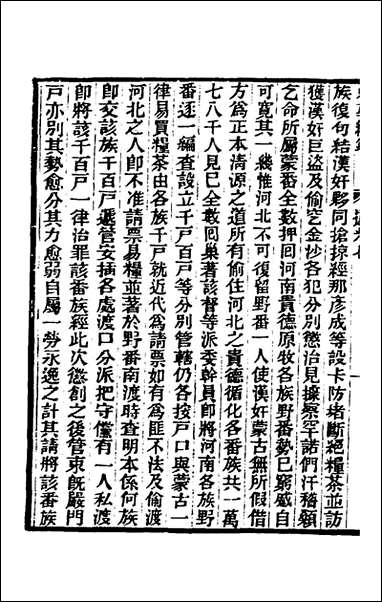 族復句結漢奸夥同搶掠經那彥成等設卡防堵斷絕糧茶並訪
獲漢奸巨盜及偷挖金沙各犯分別懲治見據察罕諾們汗稽顙
乞命所屬蒙番全數押回河南貴德原牧各族野番勢已窮蹙自
可寬其一綫惟河北不可復留野番一人使漢奸蒙古無所假借
方為正本清源之道所有偷住河北之貴德循化各番族共一萬
七八千人見已全數囘巢著該督等派委幹員即將河南各族野
番逐一編查設立千戶百戶等分別管轄仍各按戶口與蒙古一
律易買糧茶由各族千戶就近代為請票如有為匪不法及偷渡
河北之人即不准請票易糧並著於野番南渡時查明本係何族
即交該族千百戶遞管安插各處渡口分派把守儻有一人私渡
即將該千百戶一律治罪該番族經此次懲創之後管束旣嚴門
戶亦別其勢愈分其力愈弱自屬一勞永逸之計其請將該番族